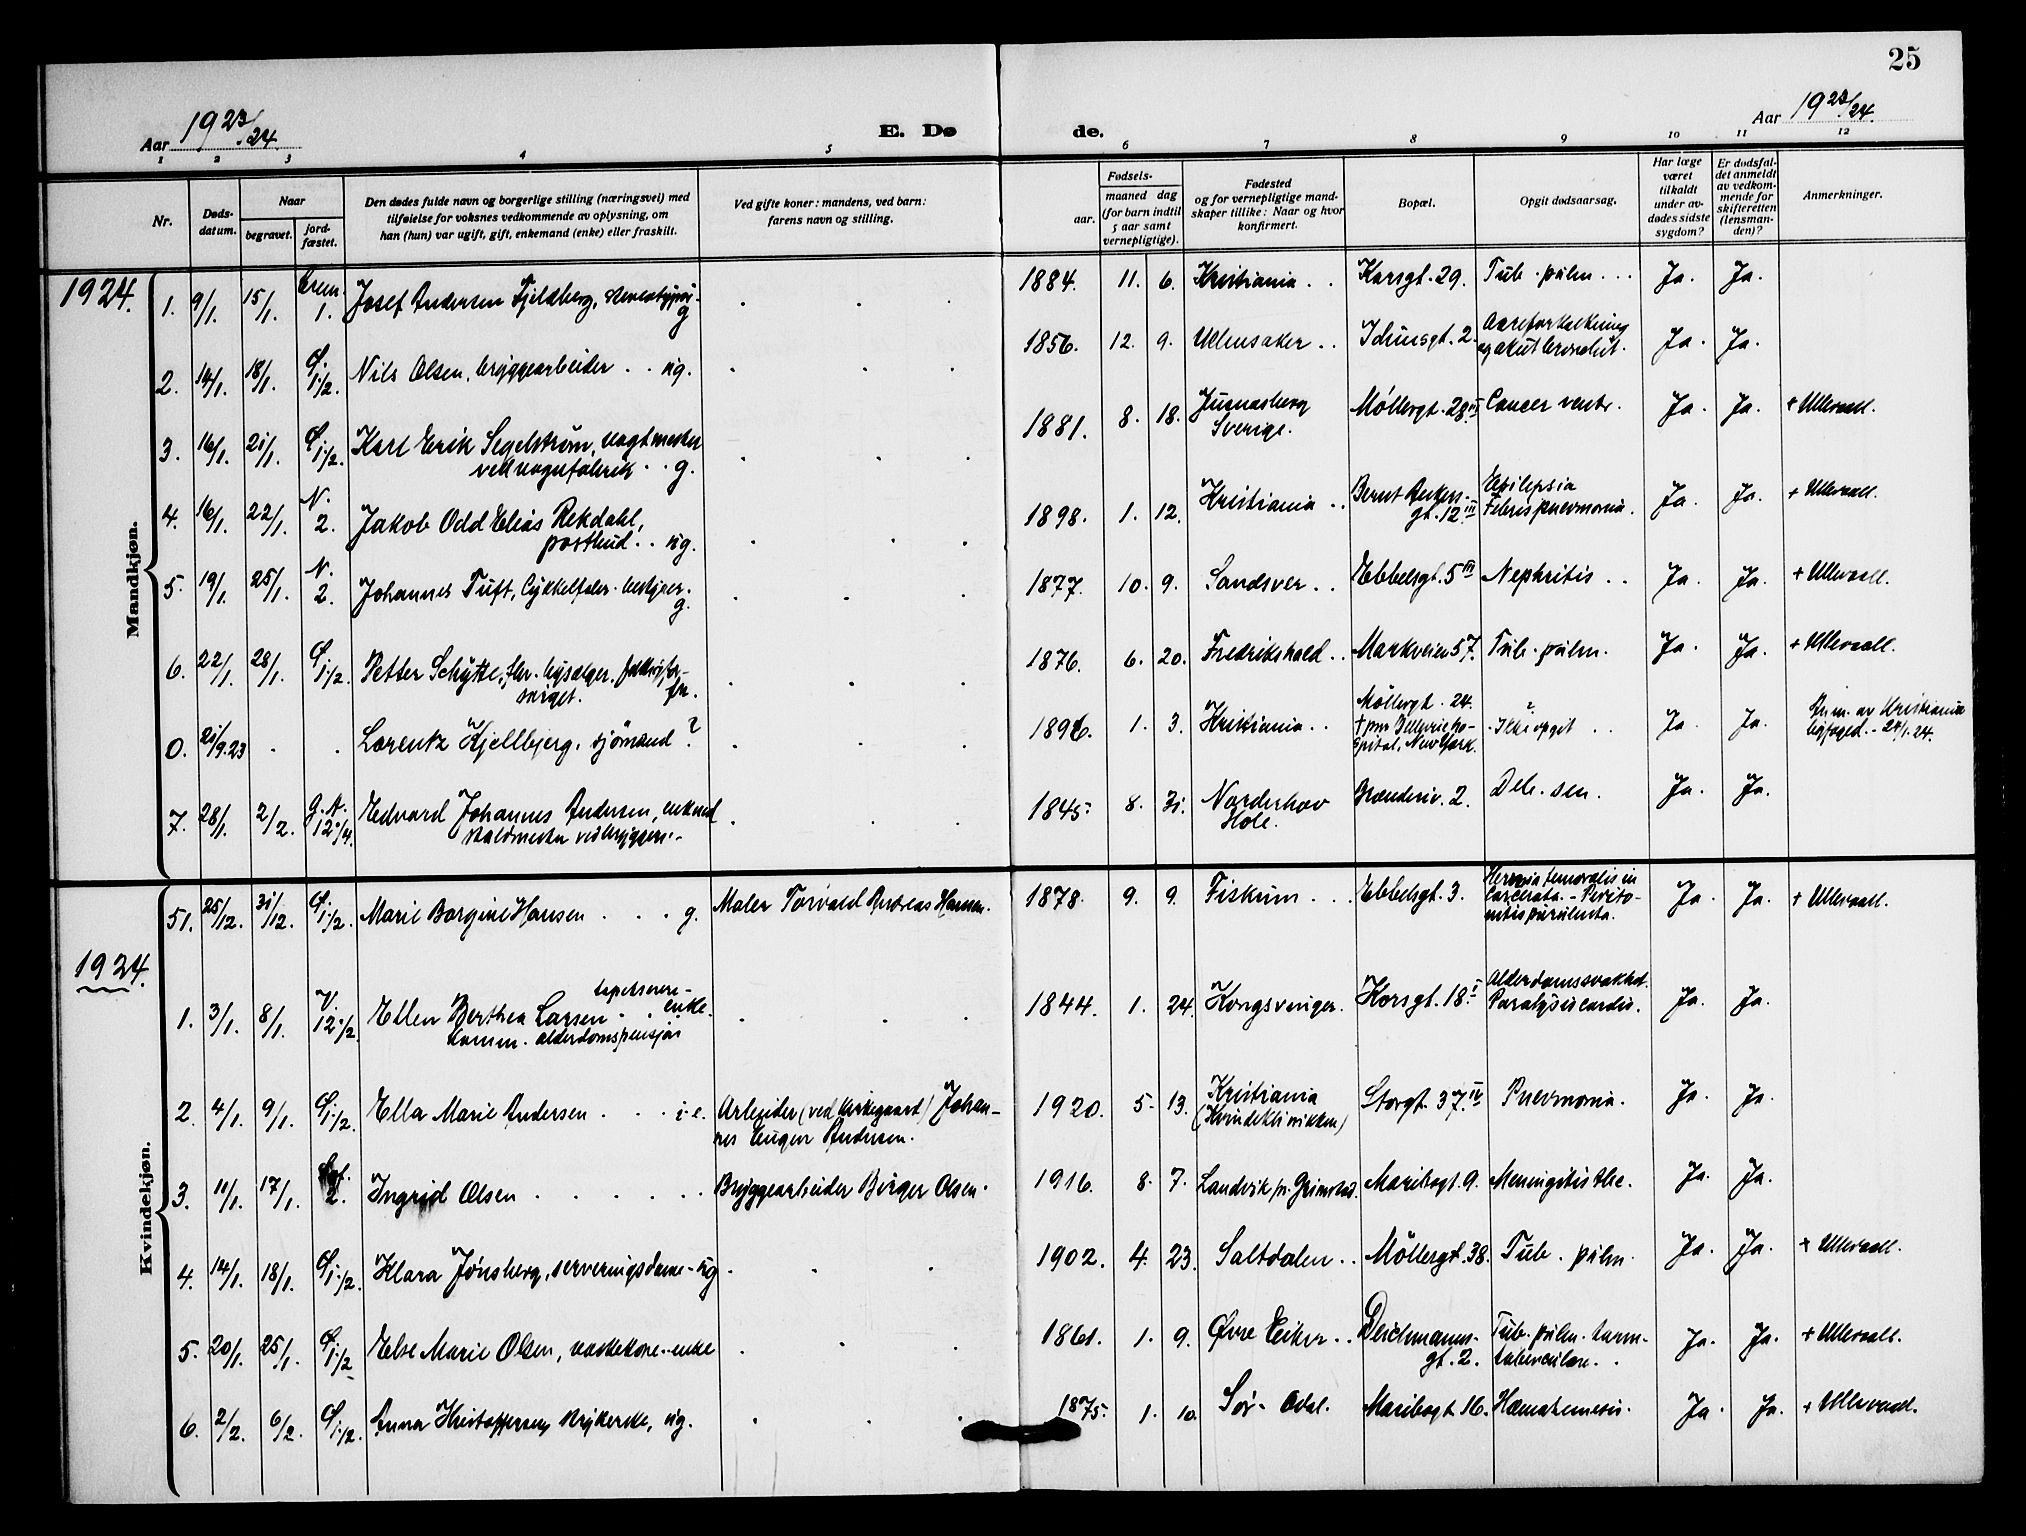 25
Aar 1923/24.
E. Døde.
Aar 1923/24.
1 2 3 4 5 6 7 8 9 10 11 12
Nr.
Døds-datum.
Naar
begravet.
jord-fæstet.
Den dødes fulde navn og borgerlige stilling (næringsvei) med
tilføielse for voksnes vedkommende av oplysning, om
han (hun) var ugift, gift, enkemand (enke) eller fraskilt.
Ved gifte koner: mandens, ved barn:
farens navn og stilling.
Fødsels-
aar.
maaned dag
(for barn indtil
5 aar samt
vernepligtige).
Fødested
og for vernepligtige mand-
skaper tillike: Naar og hvor
konfirmert.
Bopæl.
Opgit dødsaarsag.
Har læge
været
tilkaldt
under av-
dødes sidste
sygdom?
Er dødsfal-
det anmeldt
av vedkom-
mende for
skifteretten
(lensman-
den)?
Anmerkninger.
Mandkjøn.
1924.
1. 9/1. 15/1. Crem. 1. Josef Andersen Fjeldberg, stereotypör. g . . . 1884. 11. 6. Kristiania . . Korsgt. 29. Tub. pulm . . . Ja. Ja.
2. 14/1. 18/1. C. 1 1/2. Nils Olsen, bryggearbeider . . ug. . . . 1856. 12. 9. Ullensaker . . Idunsgt. 2. Aareforkalkning
og akut bronchit. Ja. Ja.
3. 16/1. 21/1. C. 1 1/2. Karl Erik Segelström, vagtmester
ved vognfabrik . . g. . . . 1881. 8. 18. Ljusnasberg
Sverige. Möllergt. 28 III Cancer ventr. Ja. Ja. + Ullevaall.
4. 16/1. 22/1. N. 2. Jakob Odd Elias Rekdahl,
postbud . . ug. . . . 1898. 1. 12. Kristiania . . Bernt Ankers-
gt. 12 III Epilepsia
Febris pneumonia. Ja. Ja. + Ullevaall.
5. 19/1. 25/1. N. 2. Johannes Tuft, Cykkelfabr. bestyrer.
g. . . . 1877. 10. 9. Sandsver . . Ebbelsgt. 5 III Nephritis . . Ja. Ja. + Ullevaall.
6. 22/1. 28/1. C. 1 1/2. Petter Schytte, fhv. lysælger. fattigfor-
sörget. fr. . . . 1876. 6. 20. Fredrikshald . . Markveien 57. Tub. pulm. Ja. Ja. + Ullevaall.
0. 21/9.23 . . Lorentz Kjellbjerg, sjömand ? . . 1896. 1. 3. Kristiania . . Möllergt. 24.
† paa
spital, New York. ?
Ikke opgit . . Ja. Ja. av Kristiania
byfoged. - 24/1. 24.
7. 28/1. 2/2. G. A. 12 3/4. Edvard Johannes Andersen, enkmd
staldmester ved bryggeri . . . . 1845. 8. 31. Norderhov
Hole. Brenneriv. 2. Deb. sen. Ja. Ja.
Kvindekjøn.
51. 25/12. 31/12. C. 1 1/2. Marie Borgine Hansen . . . g. Maler Torvald Andreas Hansen. 1878. 9. 9. Fiskum . . . Ebbelsgt. 3. Hernia femoralis in
carcerata. - Perito-
nitis purulenta. Ja. Ja. + Ullevaall.
1924.
1. 3/1. 8/1. V. 12 1/2. Ellen Berthea Larsen . . tapetserer-
enke.
komm. alderdomspensjon . . . 1844. 1. 24. Kongsvinger. Korsgt. 18 I Alderdomssvakhet.
Paralysis cordis. Ja. Ja.
2. 4/1. 9/1. C. 1 1/2. Ella Marie Andersen . . . i e. Arbeider (ved kirkegaard) Johan-
nes Eugen Andersen. 1920. 5. 13. Kristiania
(Kvindeklinikken) Storgt. 37. IV Pnevmonia. Ja. Ja.
3. 11/1. 17/1. 2. Ingrid Olsen . . . . . . Bryggearbeider Birger Olsen. 1916. 8. 7. Landvik pr. Grimstad. Maribogt. 9. Meningitis tbc. Ja. Ja.
4. 14/1. 18/1. C. 1 1/2. Klara Jönsberg, serveringsdame - ug . . . 1902. 4. 23. Saltdalen . . Möllergt. 38. Tub. pulm. Ja. Ja. + Ullevaall.
5. 20/1. 25/1. C. 1 1/2 Else Marie Olsen, vaskekone. - enke . . . 1861. 1. 9. Øvre Eiker . . Deichmanns-
gt. 2. Tub. pulm. tarm-
tuberculose. . Ja. Ja. + Ullevaall.
6. 2/2. 6/2. C. 1 1/2. Anna Kristoffersen, strykerske, ug. . . 1875. 1. 10. Sör-Odal. Maribogt. 16. Hæmatemesis. Ja. Ja. + Ullevaall.